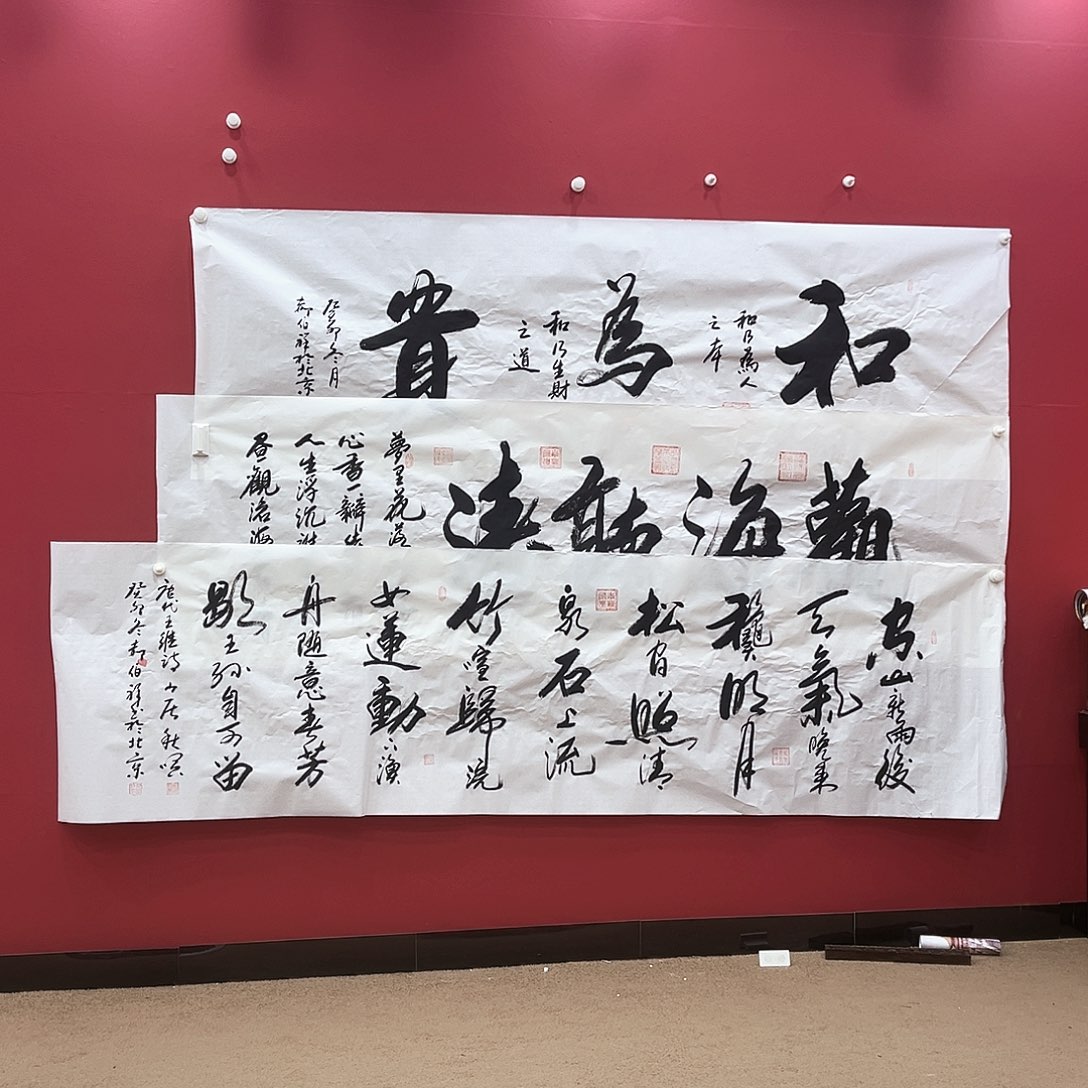 和
和乃為人
之本
為
和乃生財
之道
貴
癸卯冬月
郝伯祥於北京
海
聽
夢里花落
心香一瓣
人生浮沉
昼觀滄海
空山新雨後
天氣晚来
龝明月
松間照清
泉石上流
竹喧歸浣
女蓮動下漁
舟隨意春芳
歇王孫自可留
唐代王維詩山居秋暝
癸卯冬郝伯祥書於北京